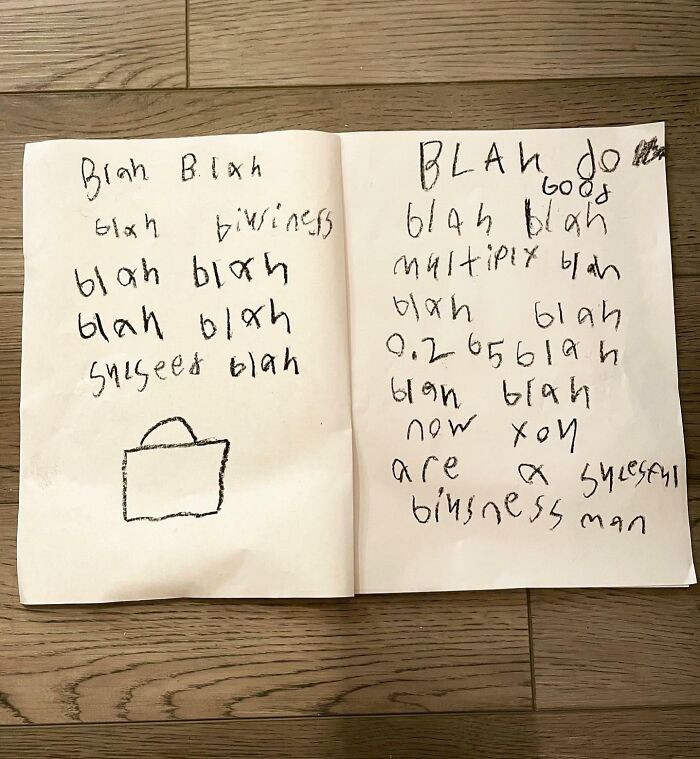 Blah Blah
blah biusiness
blah blah
blah blah
sucseed blah
BLAh do
good
blah blah
multiply blah
blah blah
0.265 blah
blah blah
now you
are a sucesful
biusness man